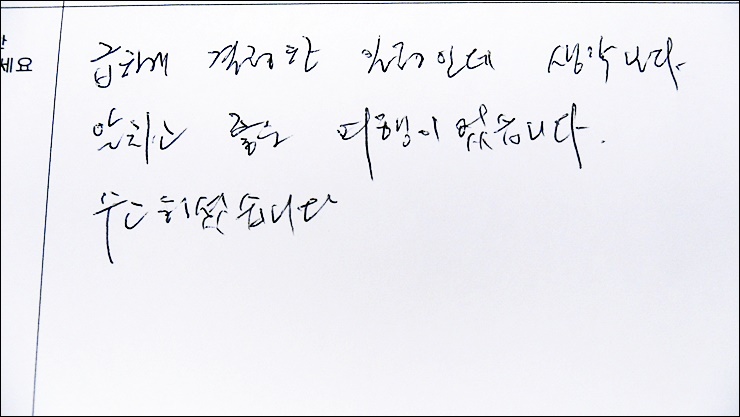 급하게 결정한 일정인데 생각보다
알차고 좋은 여행이었습니다.
수고하셨습니다
세요